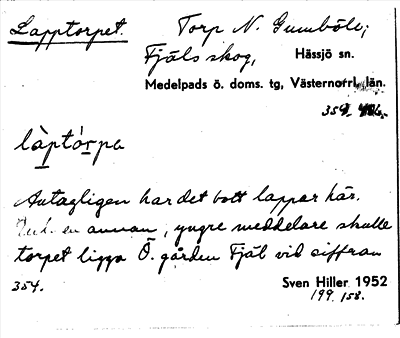 Lapptorpet. Torp N. Gumböle;
Fjäls skog, Hässjö sn.
Medelpads ö. doms. tg, Västernorrl. län.
354
làptórpa
Antagligen har det bott lappar här.
en annan, yngre meddelare skulle
torpet ligga Ö. gården Fjäl vid siffran
354. Sven Hiller 1952
199. 158.